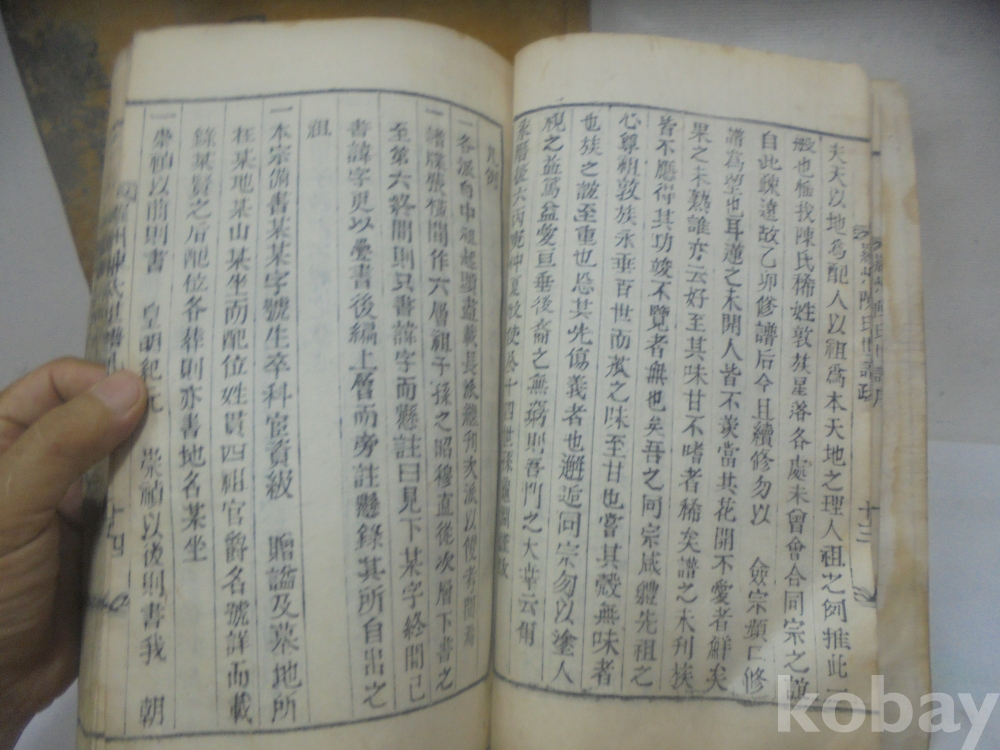 夫天以地為配人以祖爲本天地之理人祖之例推此一
般也極我陳氏稀姓敦族星落各處未曾會合同宗之誼
自此踈遠故乙卯修譜后今且續修勿以 僉宗頻口修
譜爲望也耳蓮之未開人皆不羡當其花開不愛者鮮矣
果之未熟誰亦云好至其味甘不嗜者稀矣譜之未刋族
皆不應得其功竣不覽者無也矣吾之同宗咸軆先祖之
心尊祖敦族永垂百世而救之味至甘也嘗其殼無味者
也族之誼至重也忍其先傷義者也邂逅同宗勿以塗人
視之益篤益愛亘垂後裔之無窮則吾門之大幸云爾
十四世孫
凡例
一各派自中祖起頭盡載長派継刋次派以便考閱焉
一譜牒張橫間作六層祖子孫之昭穆直從次層下書之
至第六終間則只書諱字而懸註曰見下某字終間已
書諱字更以疊書後編上層而旁註懸錄其所自出之
祖
一本宗備書某某字號生卒科宦資級 贈謚及墓地所
在某地某山某坐而配位姓貫四祖官爵名號詳而載
錄某賢之后配位各葬則亦書地名某坐
一崇禎以前則書 皇明紀元 崇禎以後則書我 朝
陳氏世譜序
十三
十四
kobay